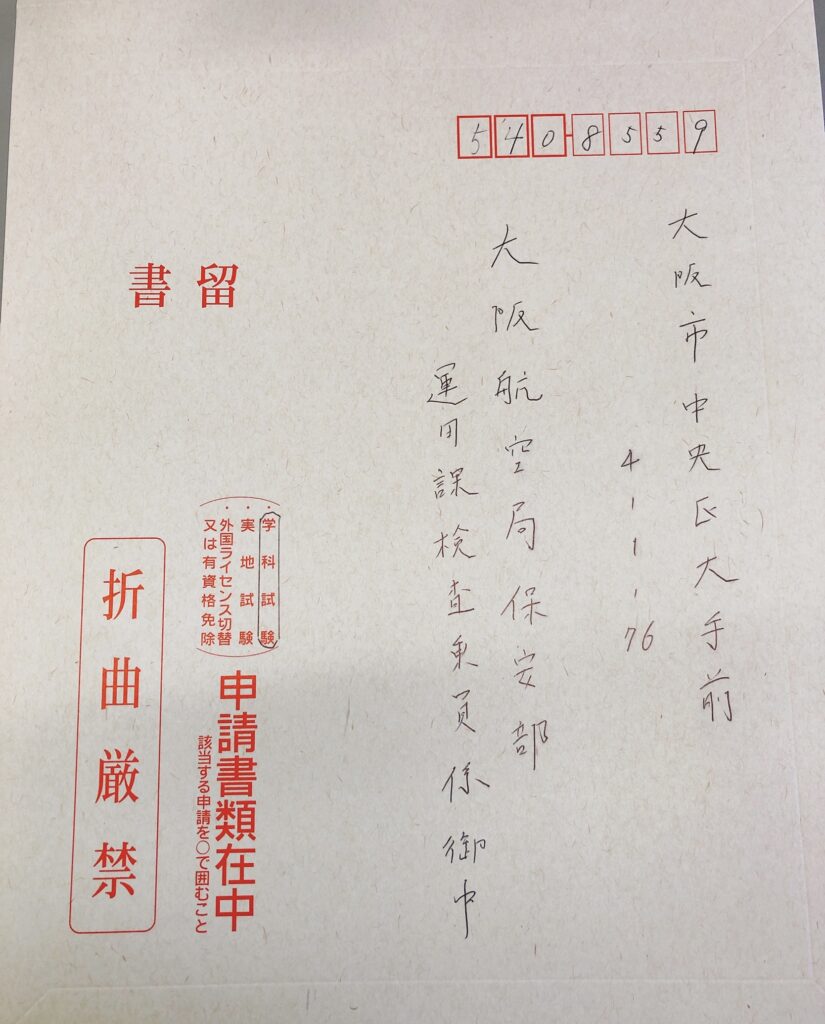 5408559
大阪市中央区大手前
4-1-76
大阪航空局保安部
運用課検査乗員係御中
書留
・学科試験
・実地試験
・外国ライセンス切替
又は有資格免除
申請書類在中
該当する申請を○で囲むこと
折曲厳禁